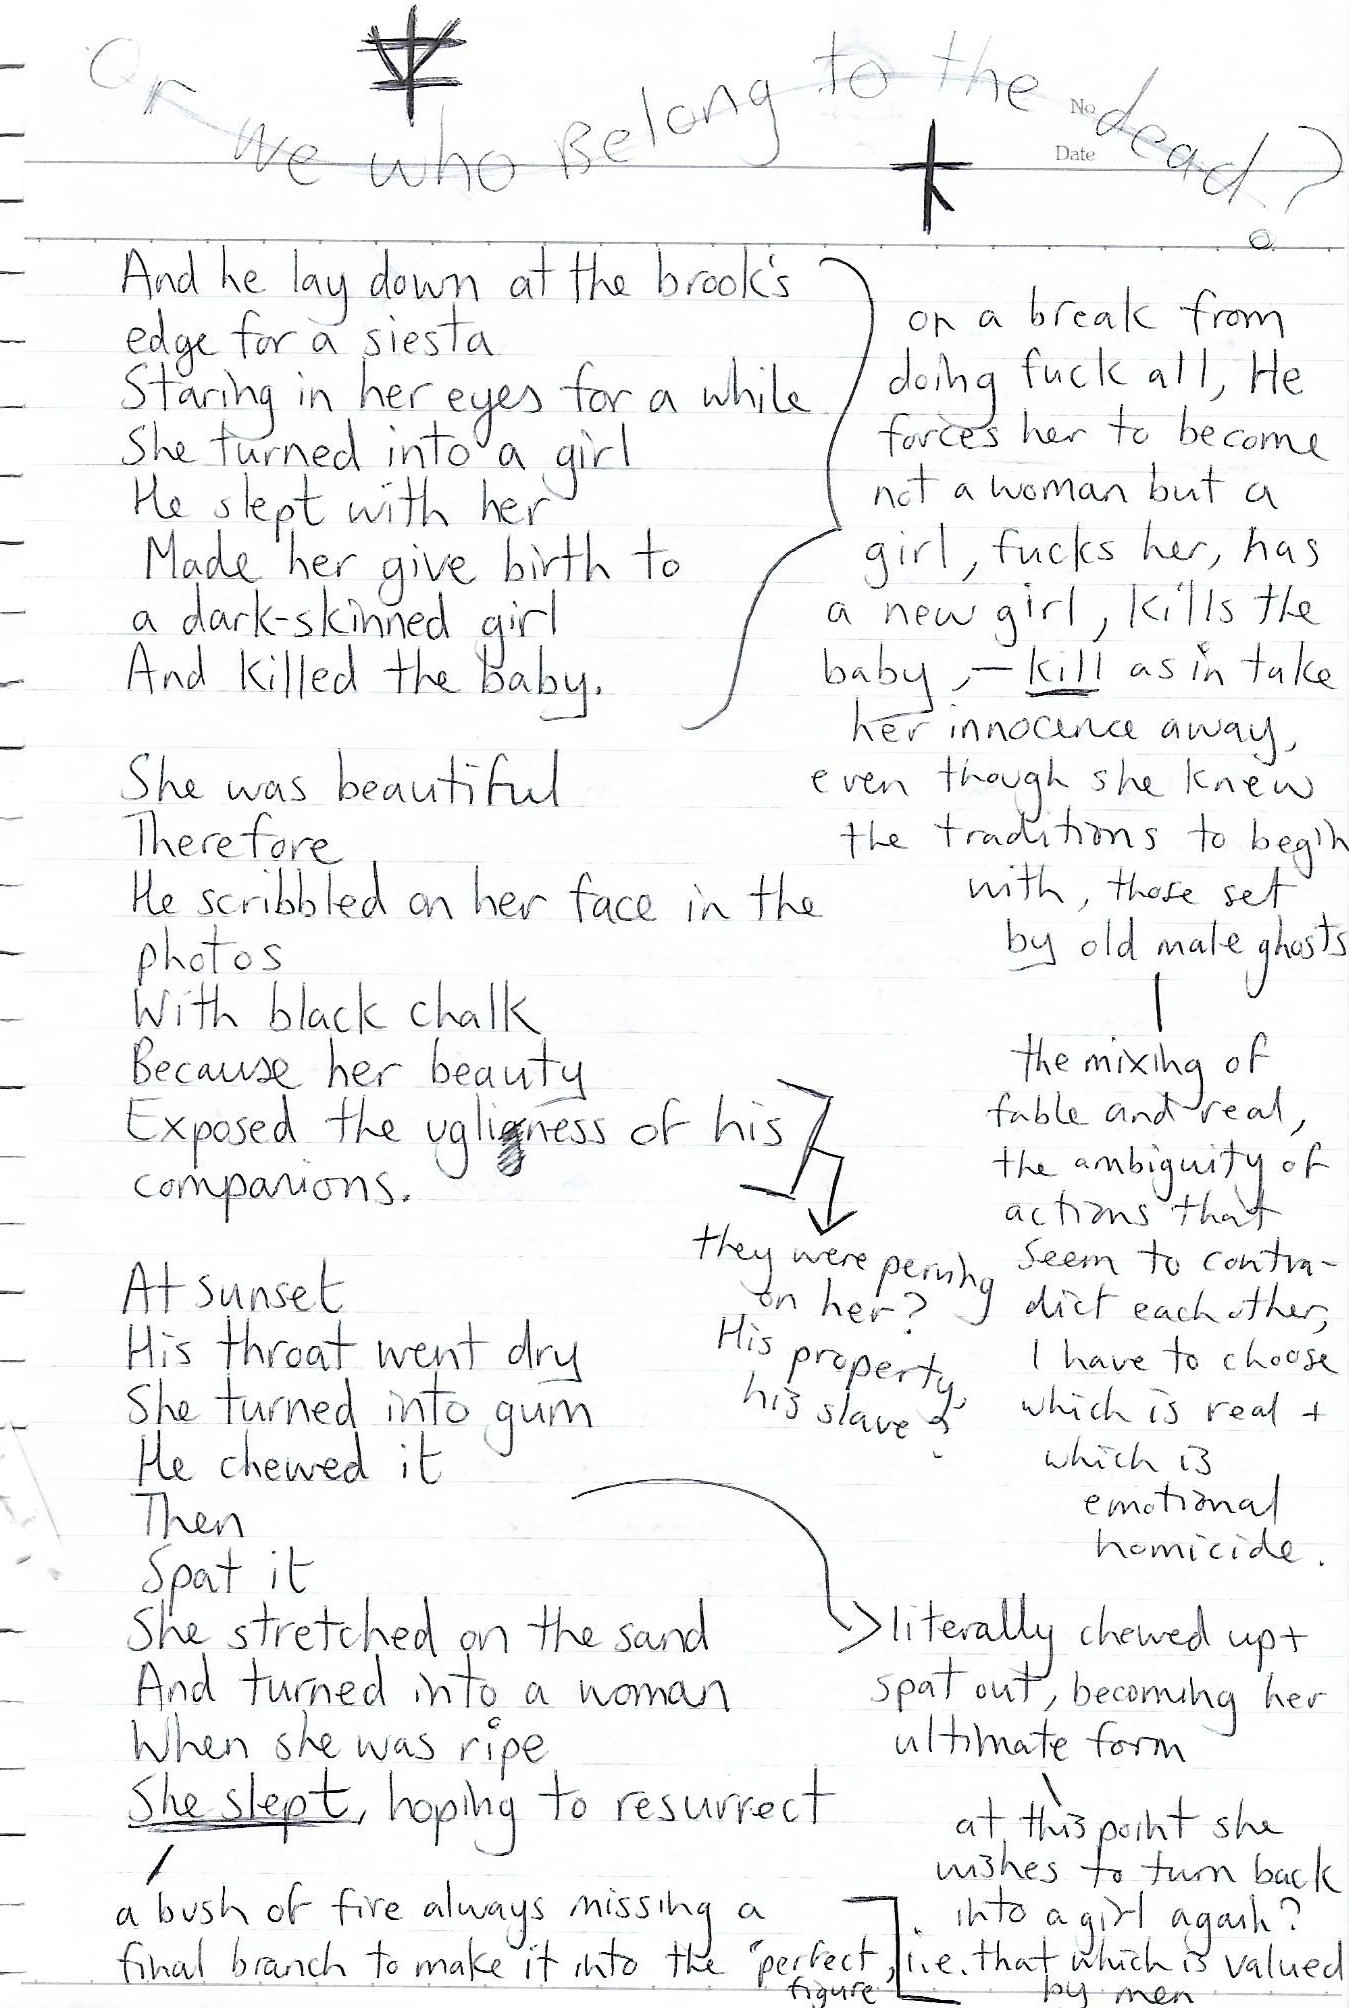 Or we who Belong to the dead?
No.
Date
And he lay down at the brook's
edge for a siesta
Staring in her eyes for a while
She turned into a girl
He slept with her
Made her give birth to
a dark-skinned girl
And killed the baby.
She was beautiful
Therefore
He scribbled on her face in the
photos
With black chalk
Because her beauty
Exposed the ugliness of his
companions.
At sunset
His throat went dry
She turned into gum
He chewed it
Then
Spat it
She stretched on the sand
And turned into a woman
When she was ripe
She slept, hoping to resurrect
a bush of fire always missing a
final branch to make it into the "perfect
figure
on a break from
doing fuck all, He
forces her to become
not a woman but a
girl, fucks her, has
a new girl, kills the
baby, – kill as in take
her innocence away,
even though she knew
the traditions to begin
with, those set
by old male ghosts
the mixing of
fable and real,
the ambiguity of
actions that
seem to contra-
dict each other,
I have to choose
which is real +
which is
emotional
homicide.
they were perving
on her?
His property,
his slave?
literally chewed up +
spat out, becoming her
ultimate form
at this point she
wishes to turn back
into a girl again?
i.e. that which is valued
by men